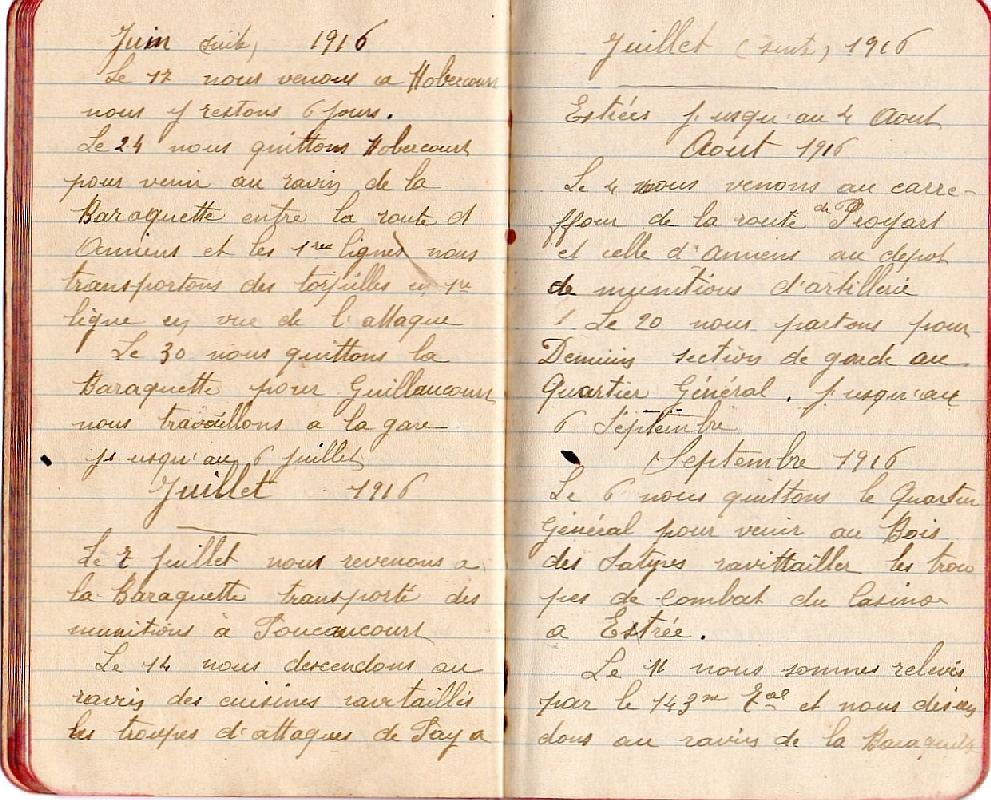 Juin (suite) 1916
Le 17 nous venons a Hobercourt
nous y restons 6 jours.
Le 24 nous quittons Hobercourt
pour venir au ravin de la
Baraquette entre la route d
Amiens et les 1res lignes nous
transportons des torpilles en 1re
ligne en vue de l'attaque
Le 30 nous quittons la
Baraquette pour Guillaucourt
nous travaillons a la gare
jusqu'au 6 juillet
Juillet 1916
Le juillet nous revenons a
la Baraquette transporté des
munitions à Foucaucourt
Le 14 nous descendons au
ravin des cuisines ravitaillés
les troupes d'attaques de Fay a
Juillet (suite) 1916
Estrées jusqu'au 4 Aout
Aout 1916
Le 4 nous venons au carre-
ffour de la route de Proyart
et celle d'Amiens au depot
de munitions d'artillerie
Le 20 nous partons pour
Demuin section de garde au
Quartier Général. jusqu'au
6 Septembre
Septembre 1916
Le 6 nous quittons le Quartier
Général pour venir au Bois
des Satyres ravittailler les trou
pes de combat du Casino
a Estrée.
Le 11 nous sommes relevés
par le 143me Eal et nous descen
dons au ravin de la Baraquette